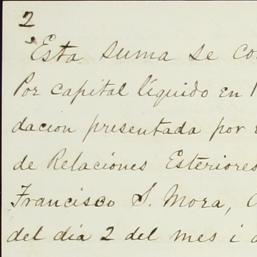 2
Esta suma se co
Por capital líquido en
dacion presentada por
de Relaciones Esteriores
Francisco S. Mora,
del dia 2 del mes i